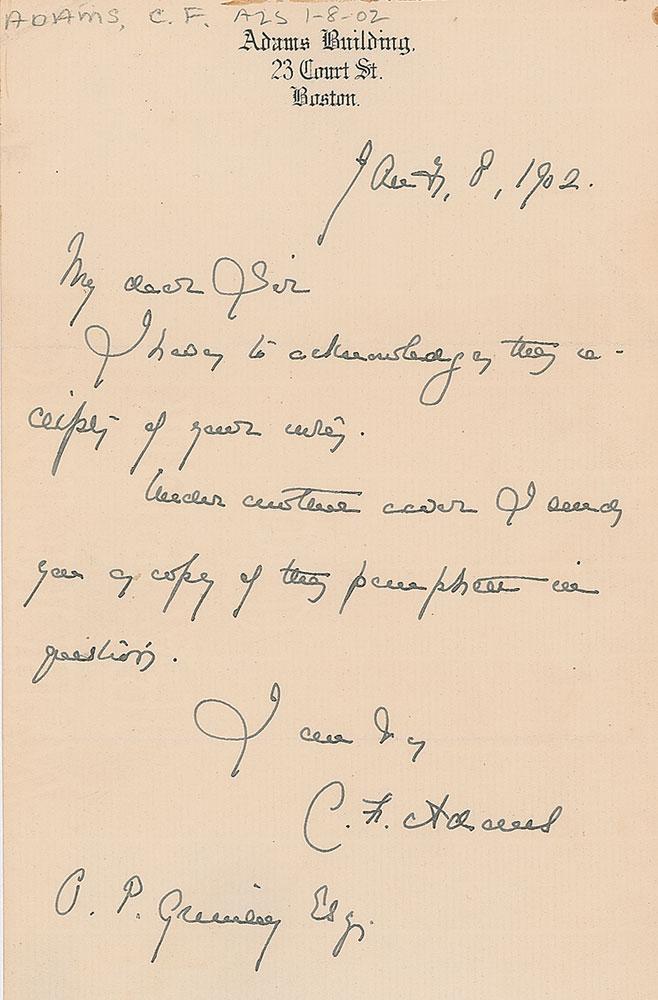 ADAMS, C. F. ALS 1-8-02
Adams Building,
23 Court St.
Boston.
Jan'y, 8, 1902.
My dear Sir
I have to acknowledge the re-
ceipt of your note.
Under another cover I send
you a copy of the pamphlet in
question.
I am &c
C. F. Adams
P. Esq.